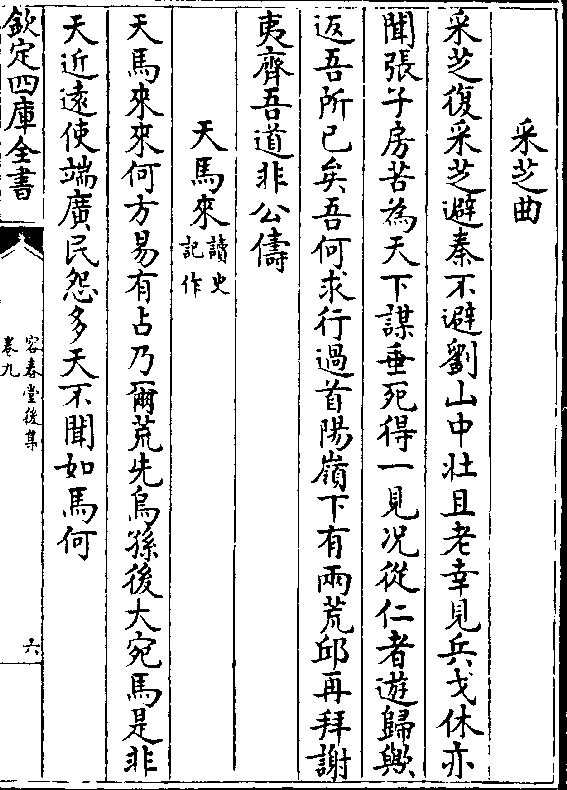 采芝曲
采芝復采芝避秦不避劉山中壯且老幸見兵戈休亦
聞張子房苦為天下謀垂死得一見况從仁者遊歸歟
返吾所已矣吾何求行過首陽嶺下有兩荒邱再拜謝
夷齊吾道非公儔
天馬來讀史記作
天馬來來何方易有占乃爾荒先烏孫後大宛馬是非
天近遠使端廣民怨多天不聞如馬何
欽定四庫全書
容春堂後集
卷九
六